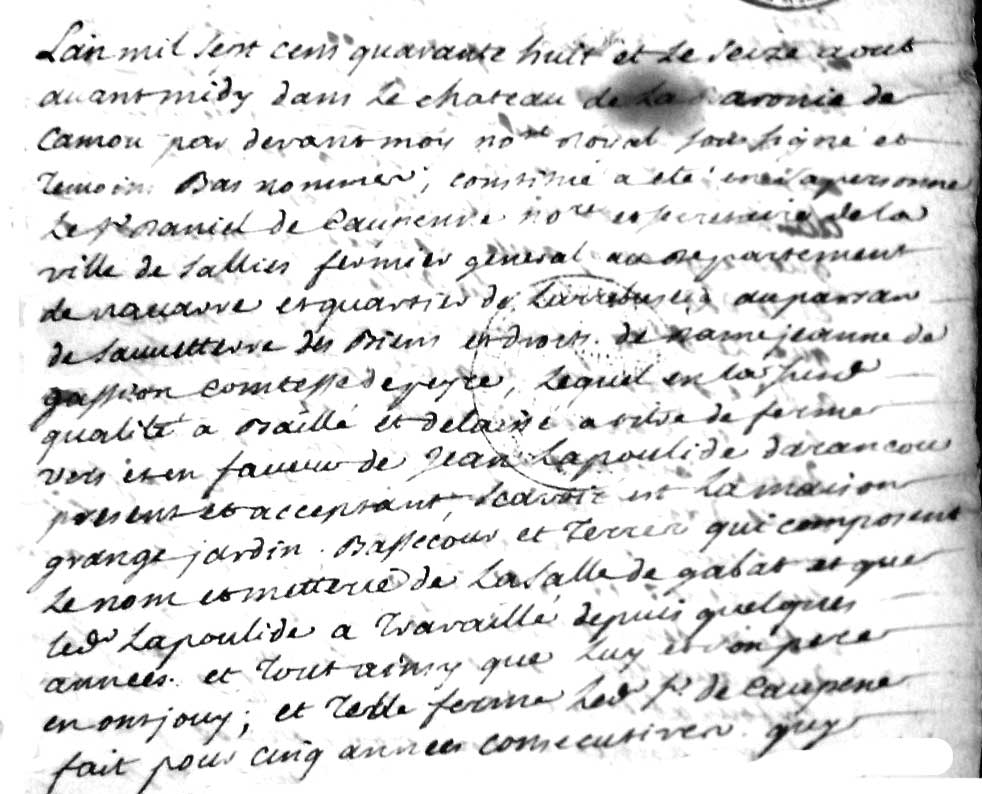 Lan mil sept cens quarante huit et le seize aout
avant midy dans le chateau de la baronie de
Camou par devant moy nore royal sousigné et
temoins Bas nommes, constitué a eté en sa personne
le sr Daniel de Caupenne nore et secretaire de la
ville de Sallies fermier general au departement
de navarre et quartier de Larribusere au parsan
de Sauvetterre des Biens et droits de dame jeanne de
gassion comtesse de peyre, lequel en la susd
qualité a Baillé et delaissé a titre de ferme
vers et en faveur de Jean Lapoulide darancou
present et acceptant, scavoir est la maison
grange jardin Bassecour et terres qui composent
le nom et metterie de Lasalle de gabat et que
led Lapoulide a travaillé depuis quelques
années et tout ainsy que luy et son pere
en ont jouy; et telle ferme led sr de Caupene
fait pour cinq années consecutives quy